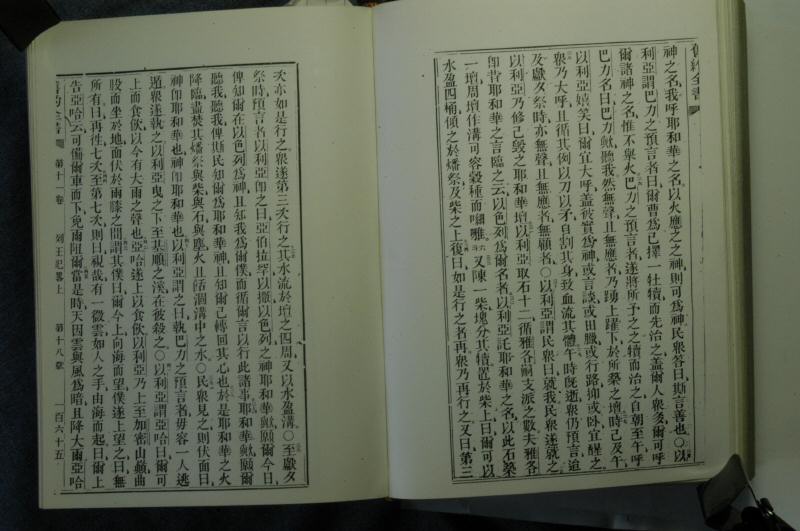 舊約全書
神之名我呼耶和華之名以火應之之神則可為神民衆答曰斯言善也〇以
利亞謂巴力之預言者曰爾曹為己擇一牲犢而先治之蓋爾人衆後爾可呼
爾諸神之名惟不舉火巴力之預言者遂將所予之之犢而治之自朝至午呼
巴力名曰巴力歟聽我然無聲且無應者乃踴上躍下於所築之壇時已及午
以利亞嬉笑曰爾宜大呼蓋彼實為神或言談或田臘或行路抑或卧宜醒之
衆乃大呼且循其例以刀以矛自割其身致血流其體午時旣逝衆仍預言迨
及獻夕祭時亦無聲且無應者無顧者〇以利亞謂民衆曰就我民衆遂就之
以利亞乃修已毀之耶和華壇以利亞取石十二循雅各嗣支派之數夫雅各
卽昔耶和華之言臨之云以色列為爾名者以利亞託耶和華之名以此石築
一壇周壇作溝可容穀種而嗍嗤又陳一柴塊分其犢置於柴上曰爾可以
水盈四桶傾之於燔祭及柴之上復曰如是行之者再衆乃再行之又曰第三
次亦如是行之衆遂第三次行之其水流於壇之四周又以水盈溝〇至獻夕
祭時預言者以利亞卽之曰亞伯拉罕以撒以色列之神耶和華歟願爾今日
俾知爾在以色列為神且知我為爾僕而循爾言以行此諸事耶和華歟願爾
聽我聽我俾斯民知爾為耶和華神且知爾己轉回其心也於是耶和華之火
降臨盡焚其燔祭與柴與石與塵火且餂涸溝中之水〇民衆見之則伏面曰
神卽耶和華也神卽耶和華也以利亞謂之曰執巴力之預言者毋容一人逃
遁衆遂執之以利亞曳之下至基順之溪在彼殺之〇以利亞謂亞哈曰爾可
上而食飲以今有大雨之聲也亞哈遂上以食飲以利亞乃上至加密山巔曲
股而坐於地面伏於兩膝之間謂其僕曰爾今上向海而望僕遂上望之曰無
所有曰再徃七次至第七次則曰視哉有一微雲如人之手由海而起曰爾上
告亞哈云可備爾車而下免雨阻爾當是時天因雲與風為暗且降大雨亞哈
舊約全書 第十一卷 列王紀畧上 第十八章 一百六十五